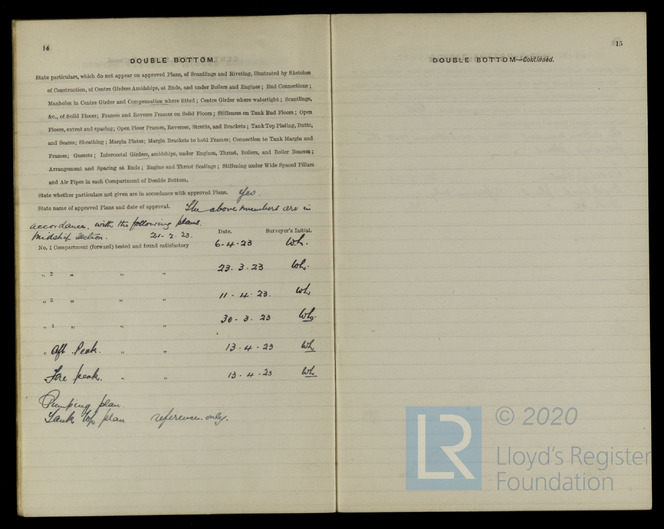 14
DOUBLE BOTTOM.
State particulars, which do not appear on approved Plans, of Scantlings and Riveting, illustrated by Sketches
of Construction, of Centre Girders Amidships, at Ends, and under Boilers and Engines; End Connections;
Manholes in Centre Girder and Compensation where fitted; Centre Girder where watertight; Scantlings,
&c., of Solid Floors; Frames and Reverse Frames on Solid Floors; Stiffeners on Tank End Floors; Open
Floors, extent and spacing; Open Floor Frames, Reverses, Struts, and Brackets; Tank Top Plating, Butts,
and Seams; Sheathing; Margin Plates; Margin Brackets to hold Frames; Connection to Tank Margin and
Frames; Gussets; Intercostal Girders, amidships, under Engines, Thrust, Boilers, and Boiler Bearers;
Arrangement and Spacing at Ends; Engine and Thrust Seatings; Stiffening under Wide Spaced Pillars
and Air Pipes in each Compartment of Double Bottom.
State whether particulars not given are in accordance with approved Plans. Yes.
State name of approved Plans and date of approval. The above numbers are in
accordance with the following plans.
Midship section. 21-2-23. Date. Surveyor's Initial.
No. 1 Compartment (forward) tested and found satisfactory 6-4-23 Wh.
" 2 " " " 23.3.23 Wh.
" 3 " " " 11-4-23. Wh.
" 4 " " " 30-3.23 Wh.
" Aft Peak. " " 13-4-23 Wh.
Fore peak. " " 13-4-23 Wh.
Pumping plan
Tank Top plan reference only.
15
DOUBLE BOTTOM—Continued.
© 2020
LR
Lloyd's Register
Foundation